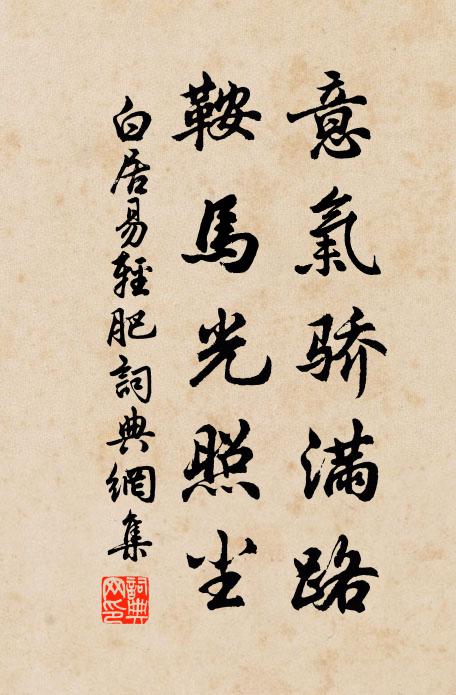 意氣骄满路
鞍馬光照尘
白居易輕肥詞典網集
詞典網印